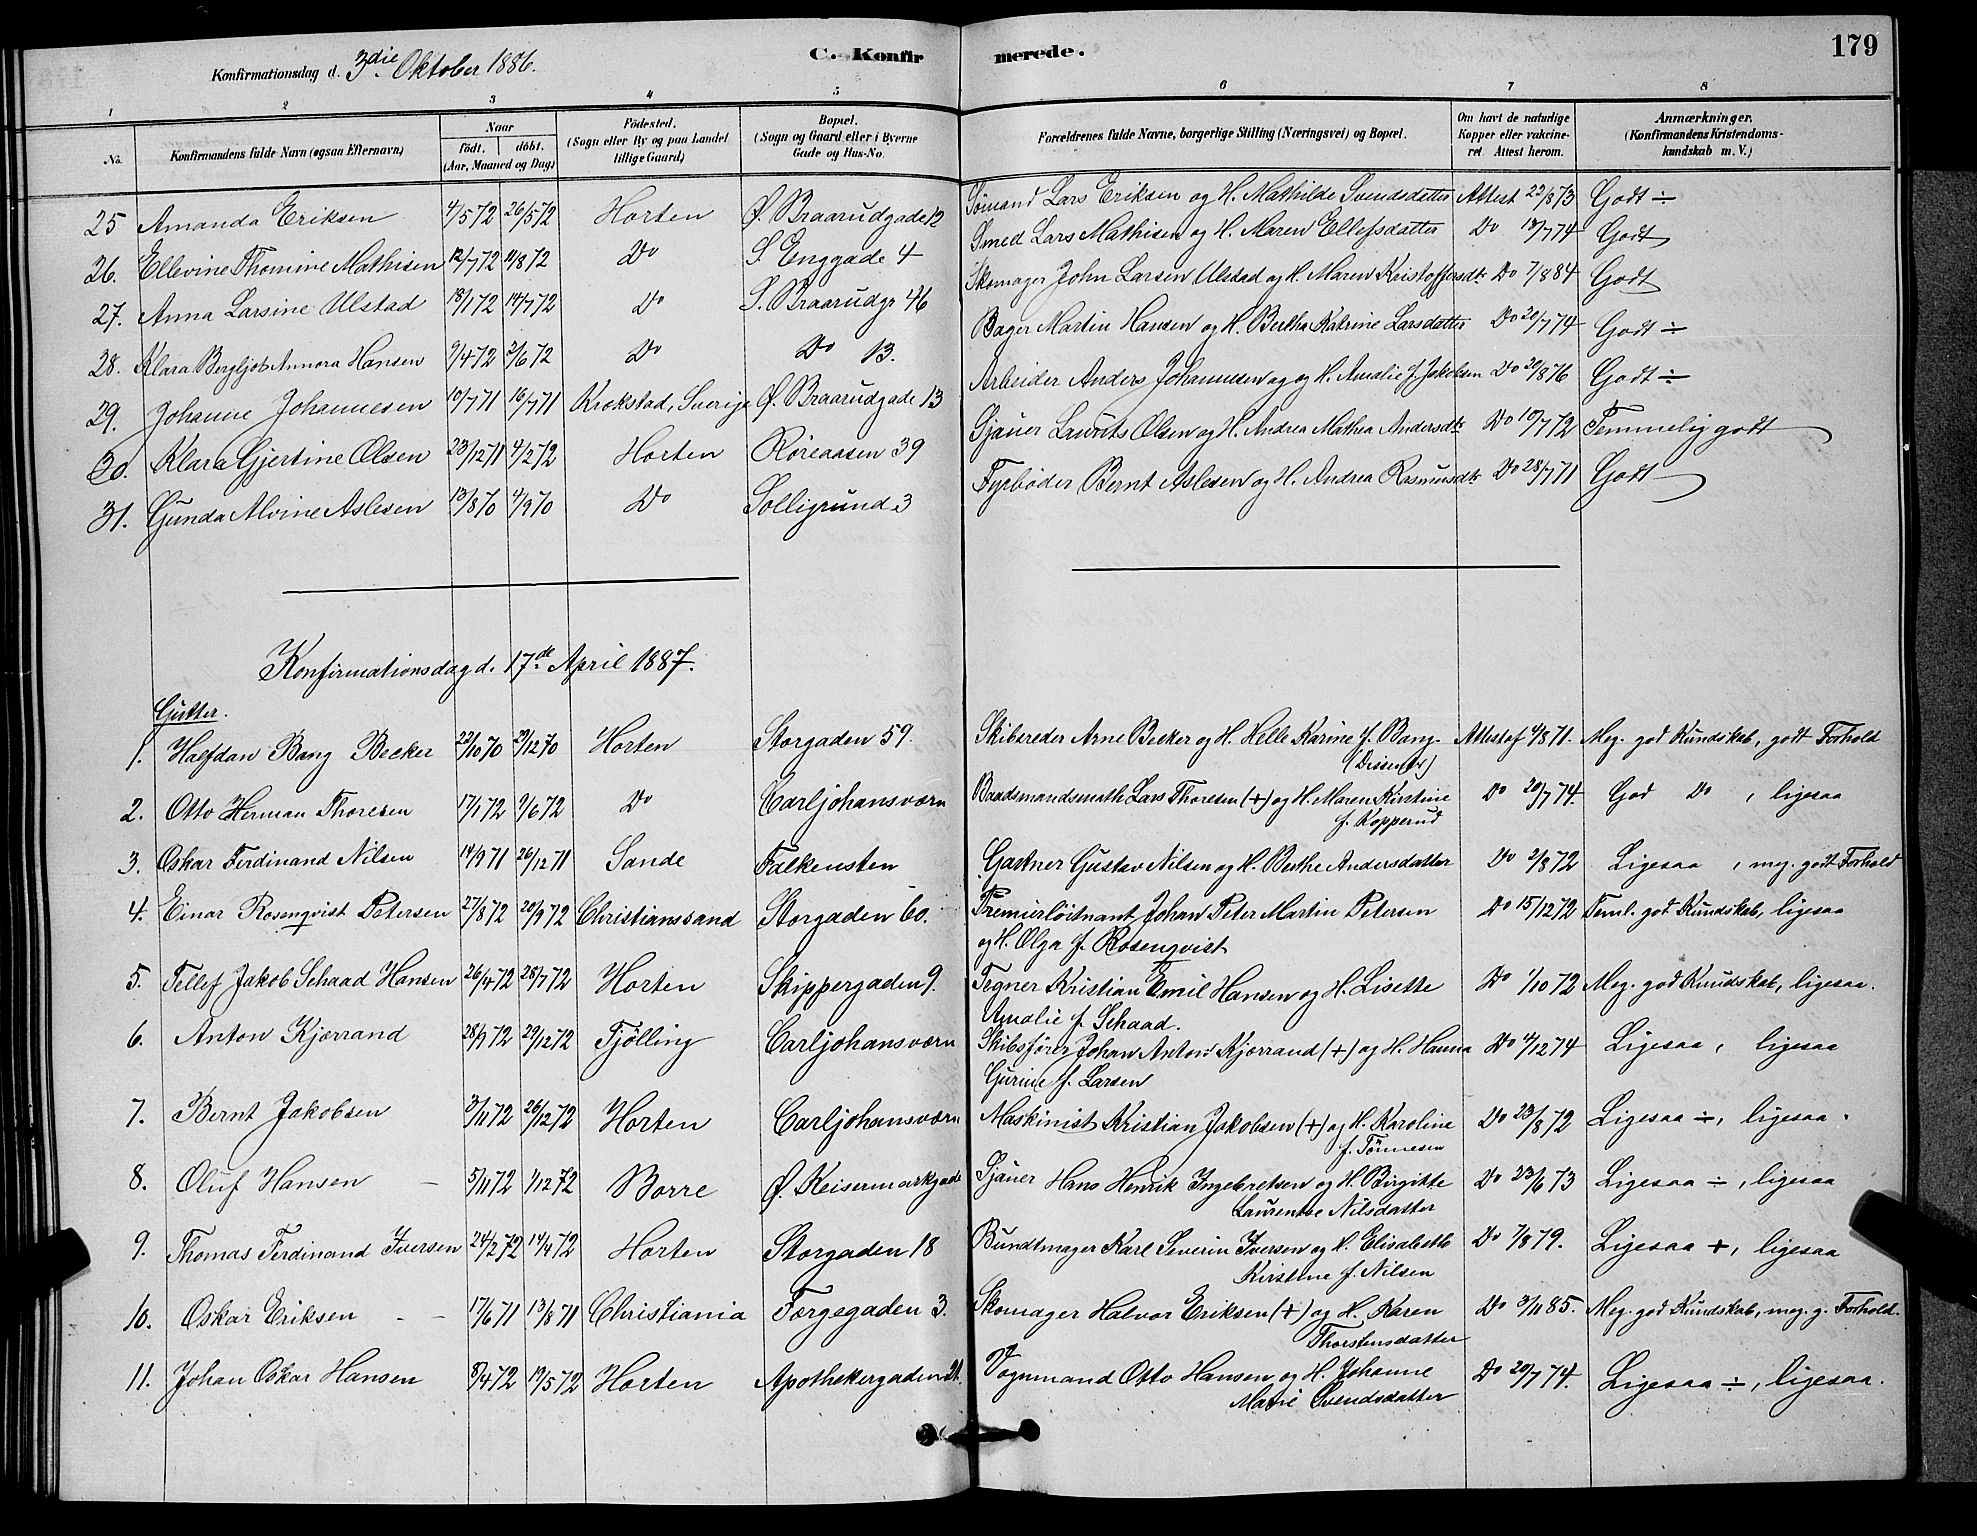 Konfirmationsdag d. 3die Oktober 1886.
C. Konfirmerede.
179
1 2 3 4 5 6 7 8
No. Konfirmandens fulde Navn (ogsaa Efternavn) Naar født. døbt. (Aar, Maaned og Dag) Fødested. (Sogn eller By og paa Landet tillige Gaard) Bopæl. (Sogn og Gaard eller i Byerne Gade og Hus-No. Forældrenes fulde Navne, borgerlige Stilling (Næringsvei) og Bopæl. Om havt de naturlige Kopper eller vakcineret Attest herom. Anmærkninger. (Konfirmandens Kristendomskundskab m. V.)
25 Amanda Eriksen 4/5 72 26/5 72 Horten Ø. Braarudgade 12 Sømand Lars Eriksen og H. Mathilde Svendsdatter Attest 22/8 73 Godt ÷
26. Ellevine Thomine Mathisen 12/7 72 11/8 72 Do S. Enggade 4 Smed Lars Mathisen og H. Maren Ellefsdatter Do 18/7 74 Godt
27. Anna Larsine Ulstad 18/1 72 14/7 72 Do S. Braarudgr 46 Skomager John Larsen Ulstad og H. Maren Kristoffersdtr Do 7/8 84 Godt
28. Klara Bergljot Annora Hansen 9/4 72 2/6 72 Do Do 13. Bager Martin Hansen og H. Bertha Katrine Larsdatter Do 20/7 74 Godt ÷
29. Johanne Johannesen 10/7 71 16/7 71 Krokstad, Sverige Ø. Braarudgade 13 Arbeider Anders Johannesen og og H. Amalie f. Jakobsen Do 20/8 76 Godt ÷
30. Klara Gjertine Olsen 23/12 71 4/2 72 Horten Røreaasen 39 Sjauer Laurits Olsen og H. Andrea Mathea Andersdtr Do 10/7 72 Temmelig godt
31. Gunda Alvine Aslesen 13/8 70 4/9 70 Do Solligrund 3 Fyrbøder Bernt Aslesen og H. Andrea Rasmusdtr Do 28/7 71 Godt
Konfirmationsdag d. 17de April 1887.
Gutter.
1. Halfdan Bang Becker 22/10 70 29/12 70 Horten Storgaden 59. Skibsreder Arne Becker og H. Helle Karine f. Bang Attest 4/8 71. Meg. god Kundskab, godt Forhold
(Dissenter)
2. Otto Herman Thoresen 17/1 72 9/6 72 Do Carljohansværn Baadsmandsmath Lars Thoresen (+) og H. Maren Kirstine Do 20/7 74. God Do, ligesaa
f. Kopperud
3. Oskar Ferdinand Nilsen 14/9 71 26/12 71 Sande Falkensten Gartner Gustav Nilsen og H. Berthe Andersdatter Do 2/8 72 Ligesaa, meg. godt Forhold
4. Einar Rosenqvist Petersen 27/8 72 20/9 72 Christianssand Storgaden 60. Premierløitnant Johan Peter Martin Petersen Do 15/12 72 Teml. god Kundskab, ligesaa
og H. Olga f. Rosenqvist
5. Tellef Jakob Schaad Hansen 26/4 72 28/7 72 Horten Skippergaden 9. Tegner Kristian Emil Hansen og H. Lisette Do 1/10 72 Meg. god Kundskab, ligesaa.
Amalie f. Schaad.
6. Anton Kjærrand 28/9 72 29/12 72 Tjølling Carljohansværn Skibsfører Johan Anton Kjærrand (+) og H. Hanna Do 4/12 74 Ligesaa, ligesaa
Gurine f. Larsen
7. Bernt Jakobsen 3/11 72 26/12 72 Horten Carljohansværn Maskinist Kristian Jakobsen (+) og H. Karoline Do 23/8 72 Ligesaa ÷, ligesaa.
f. Tønnesen
8. Oluf Hansen 5/11 72 1/12 72 Borre Ø. Keisermarkgade Sjauer Hans Henrik Ingebretsen og H. Birgitte Do 23/6 73 Ligesaa ÷, ligesaa
Laurentze Nilsdatter
9. Thomas Ferdinand Iversen 24/2 72 14/4 72 Horten Storgaden 18 Bundtmager Karl Severin Iversen og H. Elisabeth Do 7/8 79. Ligesaa +, ligesaa
Kirstine f. Nilsen
10. Oskar Eriksen 17/6 71 13/8 71 Christiania Torgegaden 3. Skomager Halvor Eriksen (+) og H. Karen Do 3/11 85. Meg. god Kundskab, meg. g. Forhold.
Thorstensdatter
11. Johan Oskar Hansen 8/4 72 19/5 72 Horten Apothekergaden 21. Vognmand Otto Hansen og H. Johanne Do 20/7 74. Ligesaa ÷, ligesaa.
Marie Svendsdatter